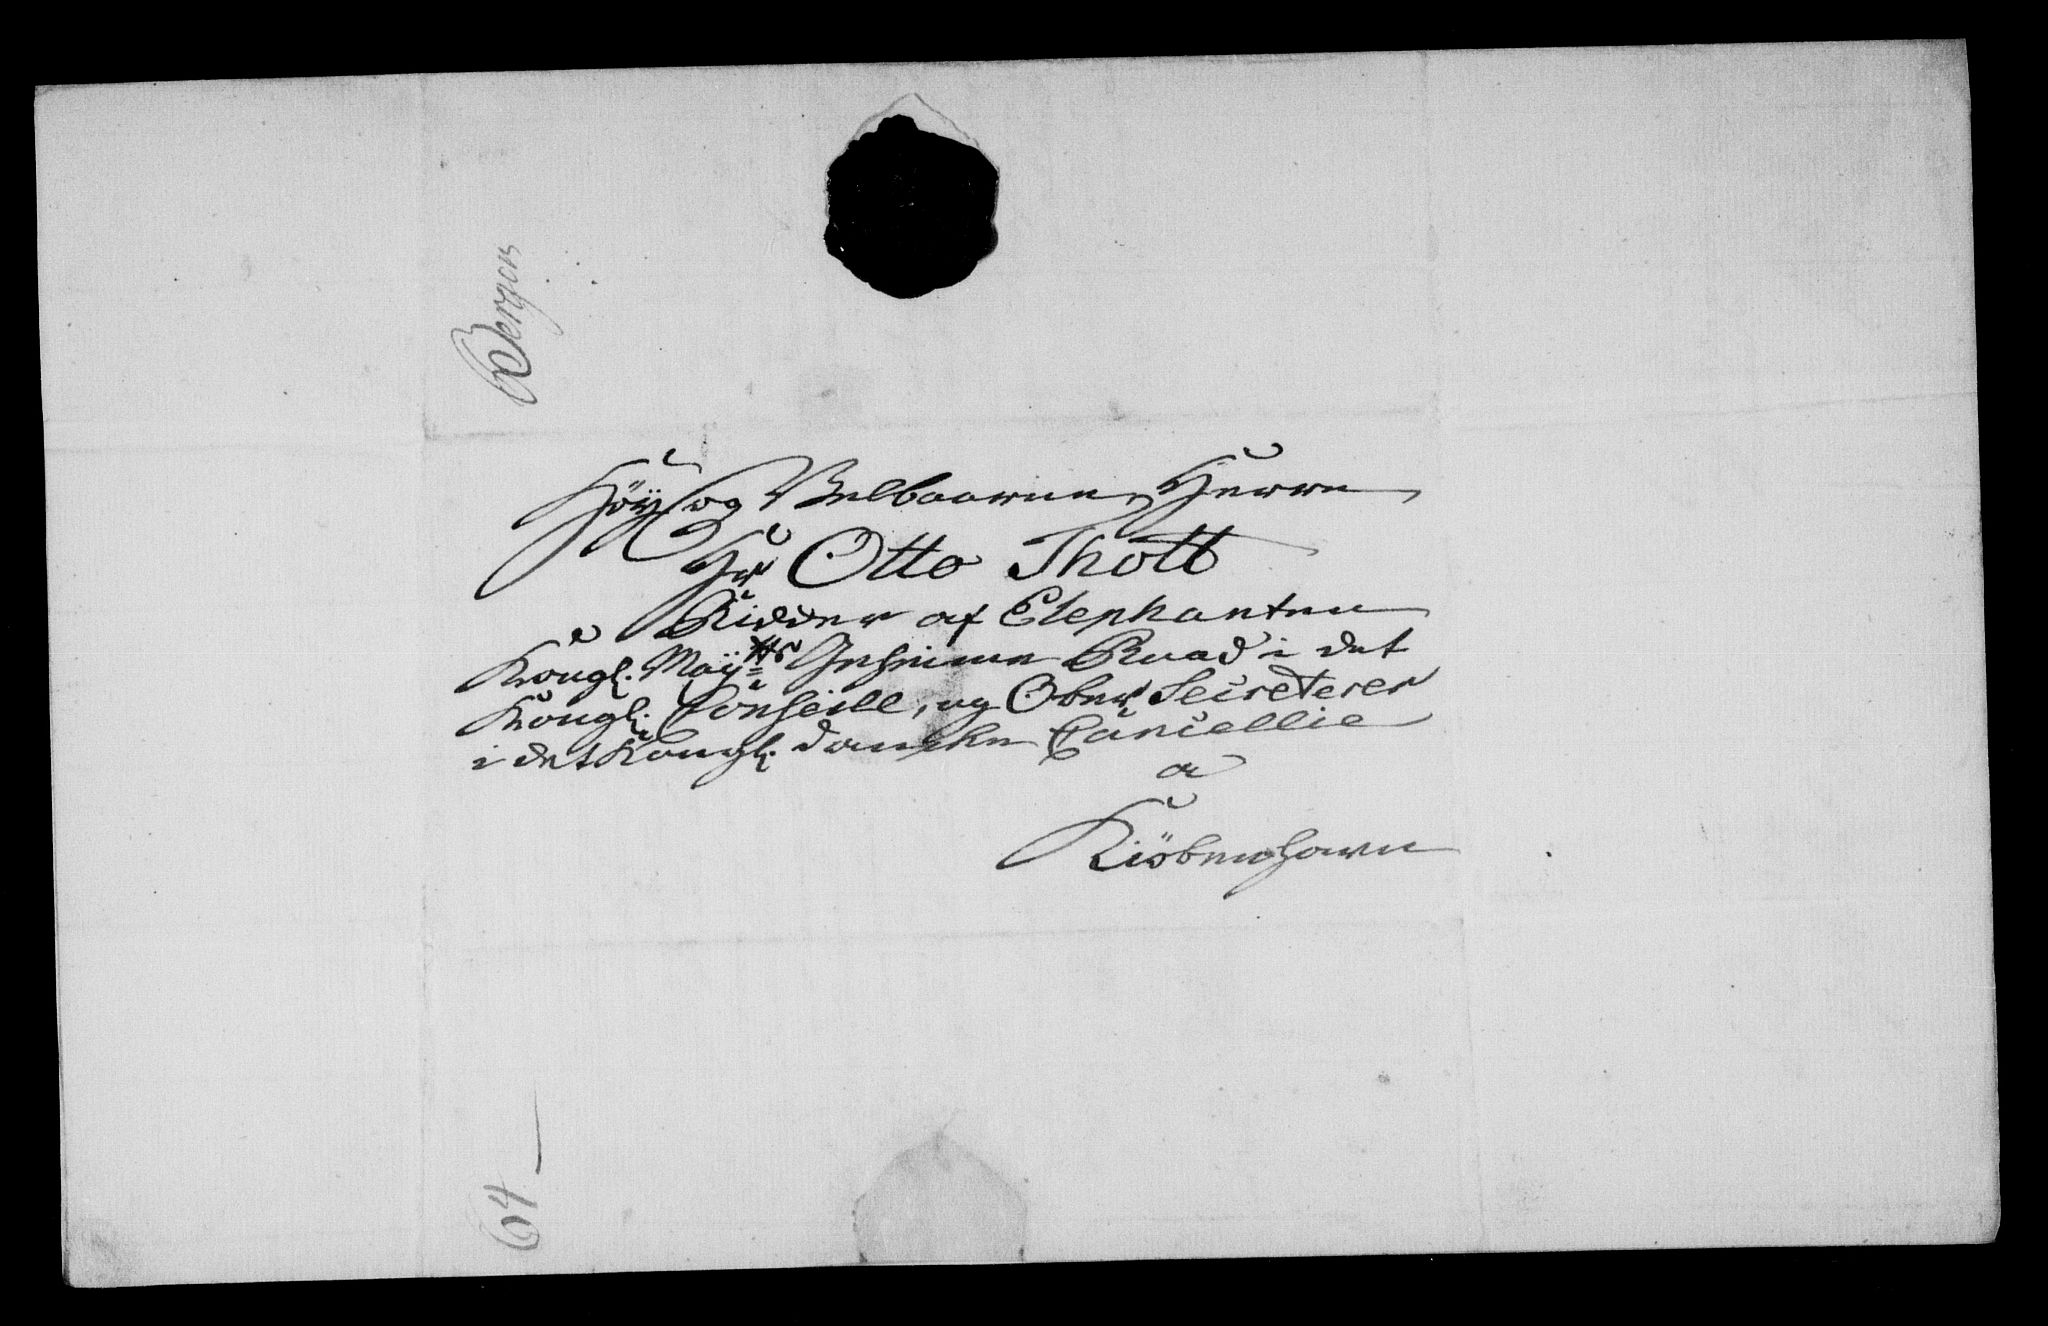 Bergen
Höÿ og Velbaarne Herre
Hr Otto Thott
Ridder af Elephanten
Kongl. Maÿtts Geheime Raad i det
Kongl. Conseill, og Ober Secreterer
i det Kongl. danske Cancellie
a
Kiöbenhavn
64